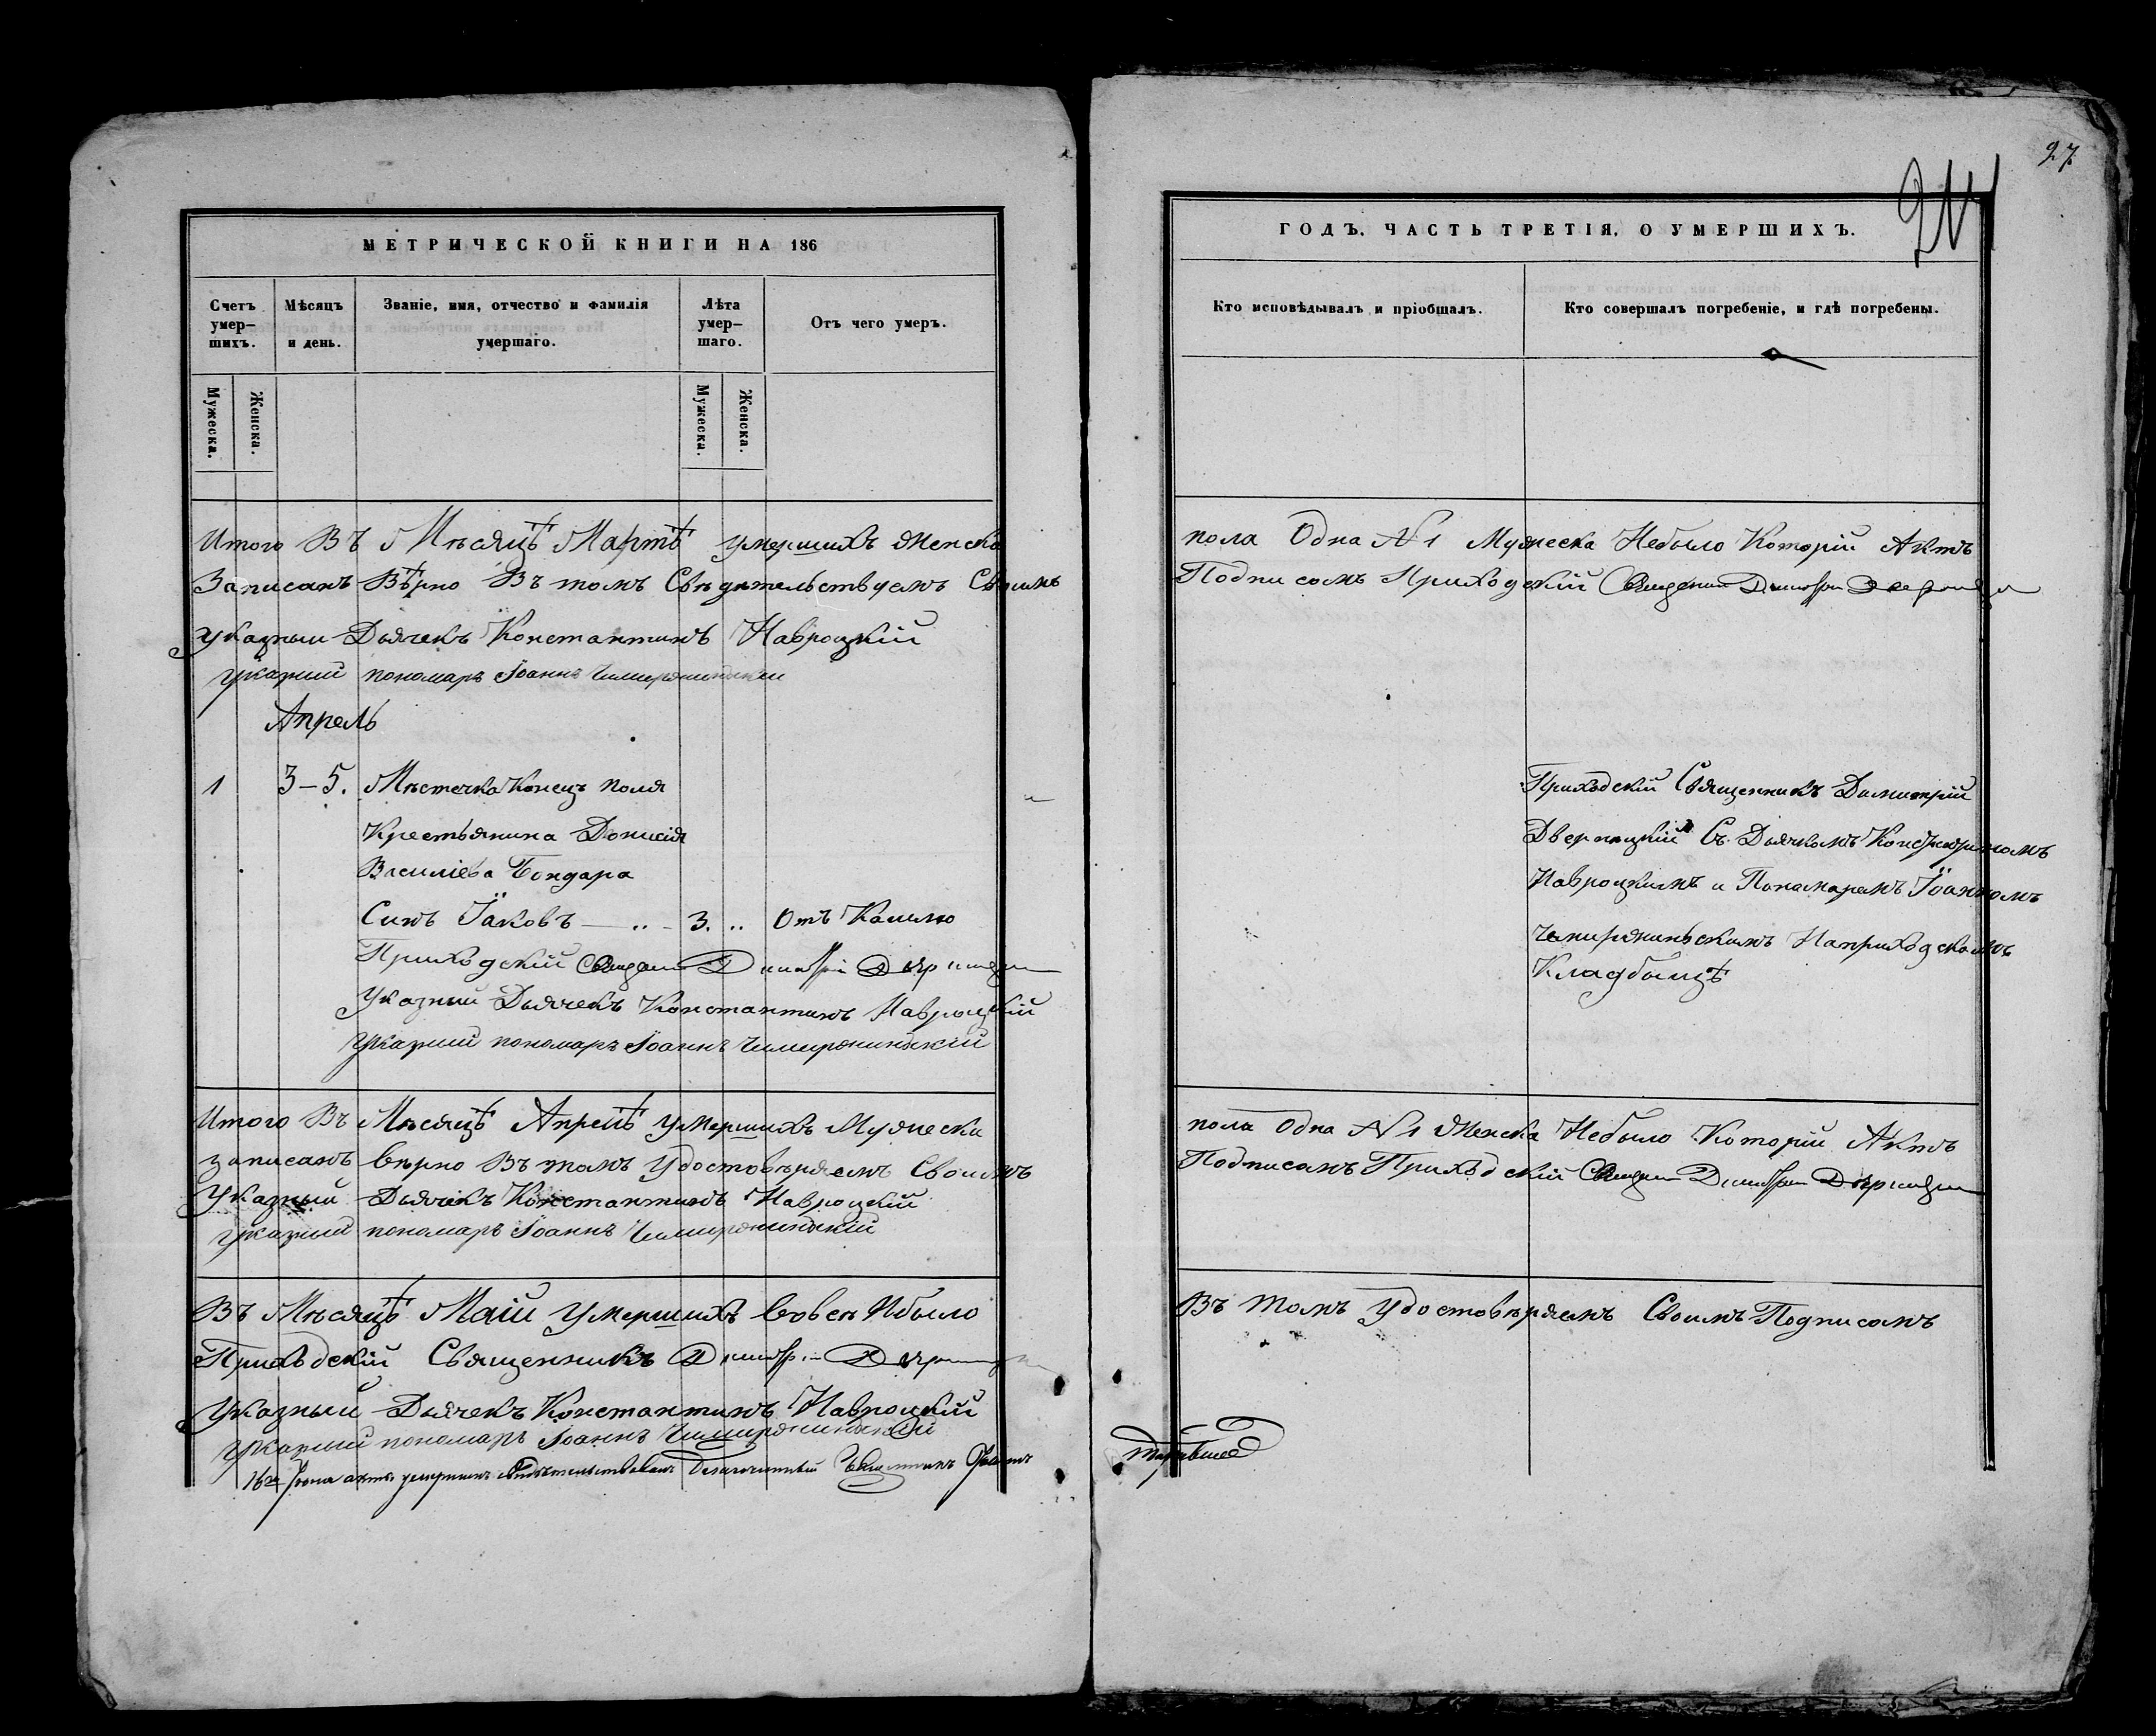 МЕТРИЧЕСКОЙ КНИГИ НА 186
Счетъ умер-шихъ.
Мѣсяцъ и день.
Званіе, имя, отчество и фамилія умершаго.
Лѣта умер-шаго.
Отъ чего умеръ.
Мужеска.
Женска.
Мужеска.
Женска.
Итого Въ Мѣсяцѣ Мартѣ умершихъ Женска
Записанъ Вѣрно Въ томъ Свѣдѣтельствуемъ Своимъ
Указный Дьячекъ Константинъ Навроцкій
Указний пономаръ Іоаннъ
Апрель
1 3-5. Мѣстечка Конецъ поля
Крестьянина Донисія
Василіева Бондара
Синъ Їаковъ — .. - 3. .. Отъ Кашлю
Приходскій
Указний Дьячекъ Константинъ Навроцкій
Указний пономаръ Іоаннъ
Итого Въ Мѣсяцѣ Апрелѣ Умершихъ Мужеска
записанъ вѣрно Въ томъ Удостовѣряемъ Своимъ
Указный Дьячекъ Константинъ Навроцкій
указний пономаръ Іоаннъ
Въ Мѣсяцѣ Маій Умершихъ Вовсѣ Нбыло
Приходскій Священникъ
Указный Дьячекъ Константинъ Навроцкій
Указний пономаръ Іоаннъ
16го акты умершихъ Благочинный
27
ГОДЪ. ЧАСТЬ ТРЕТІЯ, О УМЕРШИХЪ.
Кто исповѣдывалъ и пріобщалъ.
Кто совершалъ погребеніе, и гдѣ погребены.
пола Одна N 1 Мужеска Небыло Которій Актъ
Подписомъ Приходскій
Приходскій Священникъ Димитрій
Дверницкій Съ Дьячкомъ Константиномъ
Навроцкимъ и Понамаремъ Їоанномъ
Наприходскомъ
Кладбыщѣ
пола Одна N 1 Женска Небыло Которій Актъ
Подписомъ Приходскій
Въ томъ Удостовѣряемъ Своимъ Подписомъ